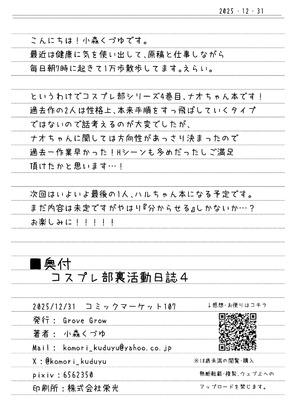 2025・12・31
こんにちは！小森くづゆです。
最近は健康に気を使い出して、原稿と仕事しながら
毎日朝7時に起きて1万歩散歩してます。えらい。
というわけでコスプレ部シリーズ4巻目、ナオちゃん本です！
過去作の2人は性格上、本来手順をすっ飛ばしていくタイプ
ではないので話考えるのが大変でしたが、
ナオちゃんに関しては方向性があっさり決まったので
過去一作業早かった！Hシーンも多めだったしご満足
頂けたかと思います…！
次回はいよいよ最後の1人、ハルちゃん本になる予定です。
まだ内容は未定ですがやはり『分からせる』しかないか…？
お楽しみに！！！！！
■奥付
コスプレ部裏活動日誌4
2025/12/31 コミックマーケット107
発行： Grove Grow
著者： 小森くづゆ
Mail： komori_kuduyu@yahoo.co.jp
X：@komori_kuduyu
pixiv：6562350
印刷所：株式会社栄光
↓感想・お便りはコチラ
※18歳未満の閲覧・購入
無断転載・複製、ウェブ上への
アップロードを禁じます。